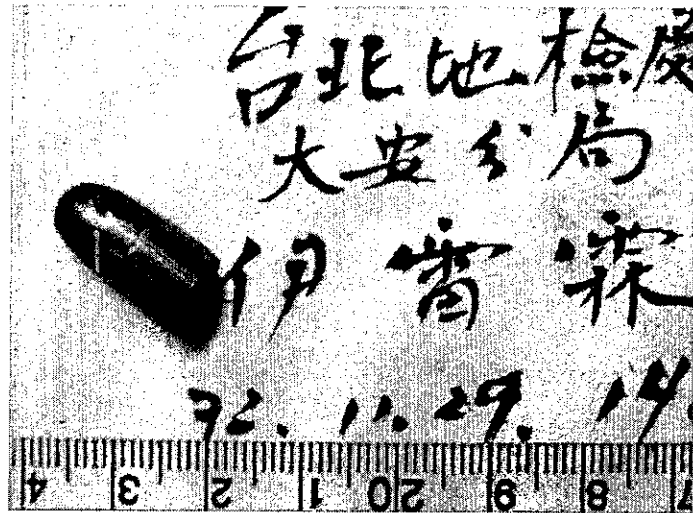 台北地檢處
大安分局
伊雷霖
72.11.29. 14
4 3 2 1 0 20 9 8 7